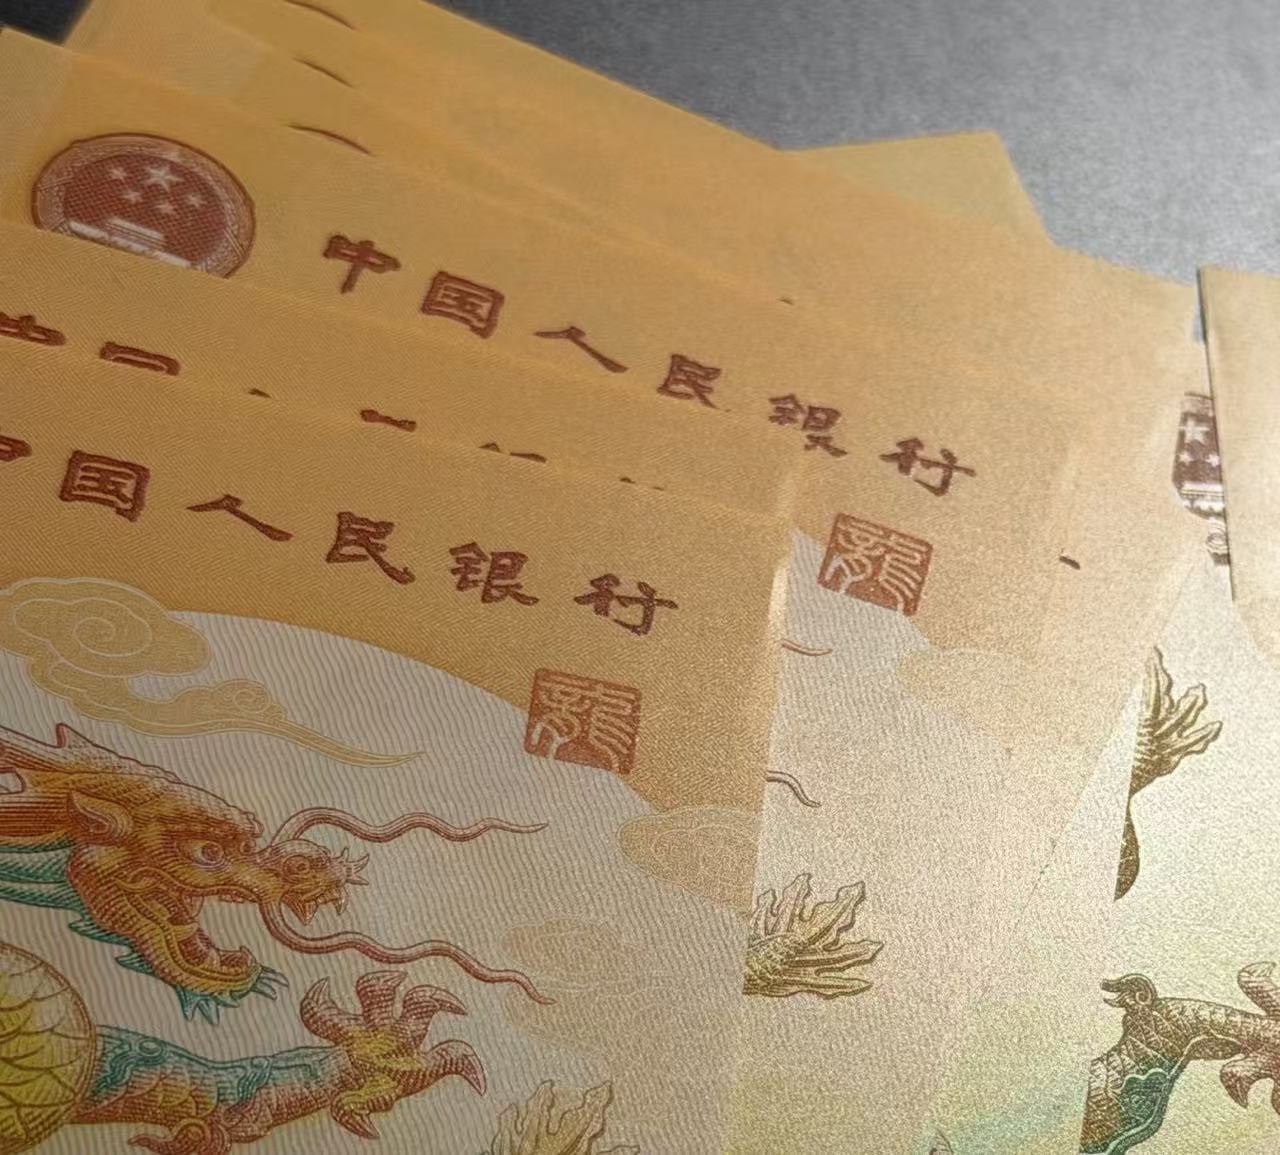 中国人民银行
龍
国人民银行
龍